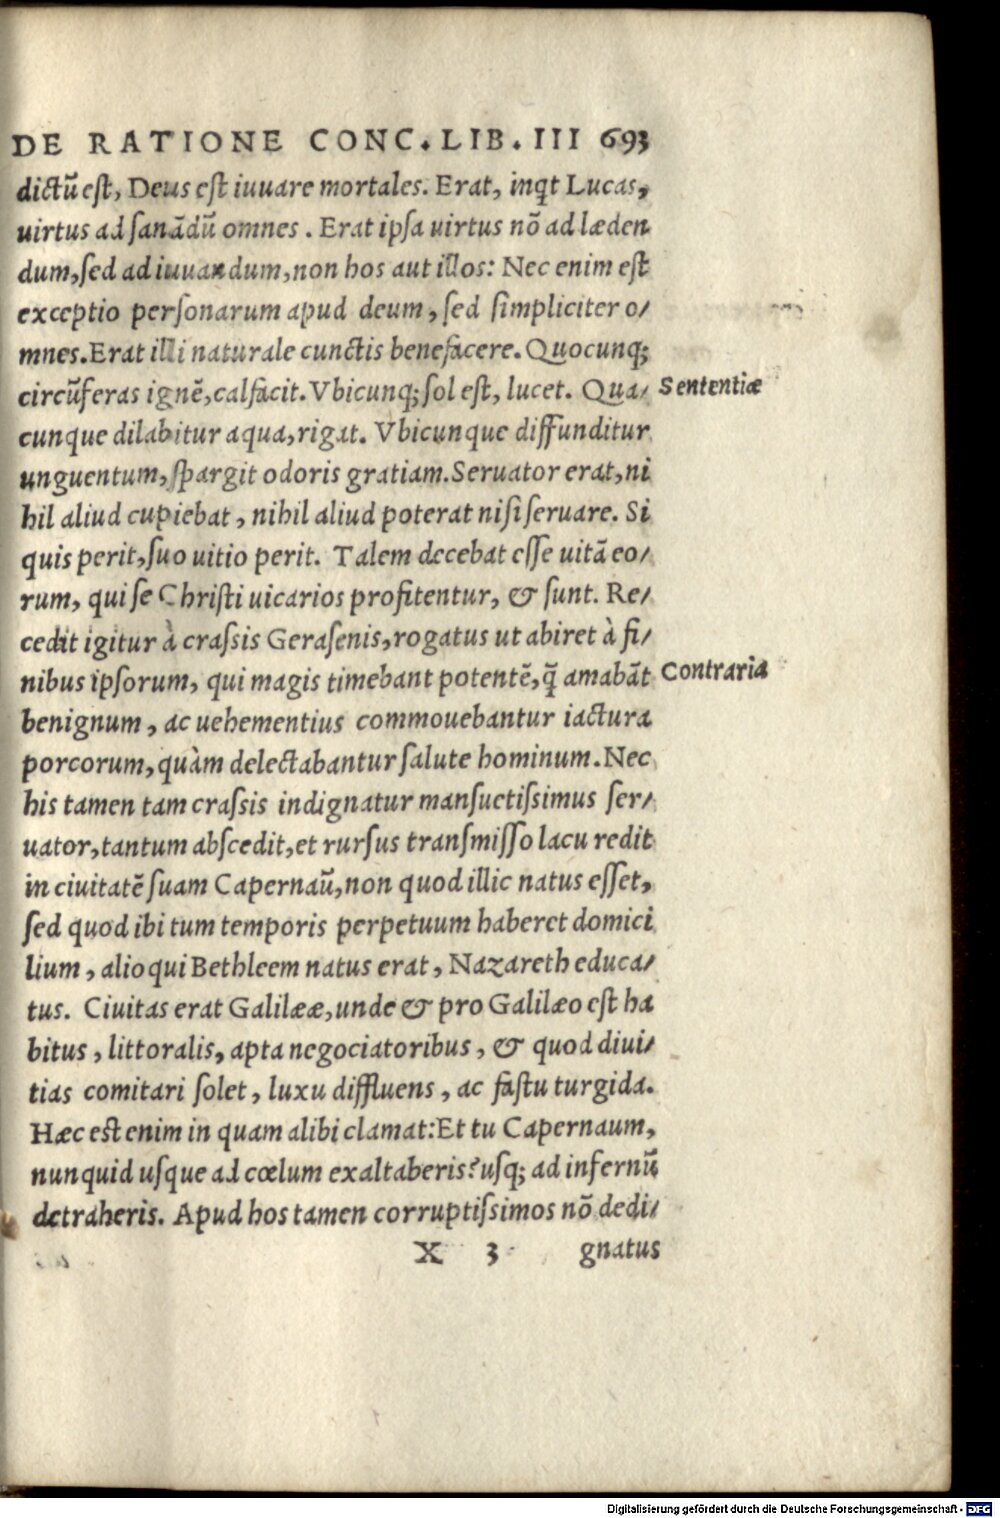 DE RATIONE CONC. LIB. III 693
dictū est, Deus est iuuare mortales. Erat, inqt Lucas,
uirtus ad sanādū omnes. Erat ipsa uirtus nō ad læden
dum, sed ad iuuandum, non hos aut illos: Nec enim est
exceptio personarum apud deum, sed simpliciter o/
mnes. Erat illi naturale cunctis benefacere. Quocunq;
circūferas ignē, calfacit. Vbicunq; sol est, lucet. Qua/ Sententiæ
cunque dilabitur aqua, rigat. Vbicunque diffunditur
unguentum, spargit odoris gratiam. Seruator erat, ni
hil aliud cupiebat, nihil aliud poterat nisi seruare. Si
quis perit, suo uitio perit. Talem decebat esse uitā eo/
rum, qui se Christi uicarios profitentur, & sunt. Re/
cedit igitur à crassis Gerasenis, rogatus ut abiret à fi/
nibus ipsorum, qui magis timebant potentē, q̄ amabāt Contraria
benignum, ac uehementius commouebantur iactura
porcorum, quàm delectabantur salute hominum. Nec
his tamen tam crassis indignatur mansuetissimus ser/
uator, tantum abscedit, et rursus transmisso lacu redit
in ciuitatē suam Capernaū, non quod illic natus esset,
sed quod ibi tum temporis perpetuum haberet domici
lium, alioqui Bethleem natus erat, Nazareth educa/
tus. Ciuitas erat Galilææ, unde & pro Galilæo est ha
bitus, littoralis, apta negociatoribus, & quod diui/
tias comitari solet, luxu diffluens, ac fastu turgida.
Hæc est enim in quam alibi clamat: Et tu Capernaum,
nunquid usque ad cœlum exaltaberis? usq; ad infernū
detraheris. Apud hos tamen corruptissimos nō dedi/
X 3 gnatus
Digitalisierung gefördert durch die Deutsche Forschungsgemeinschaft - DFG